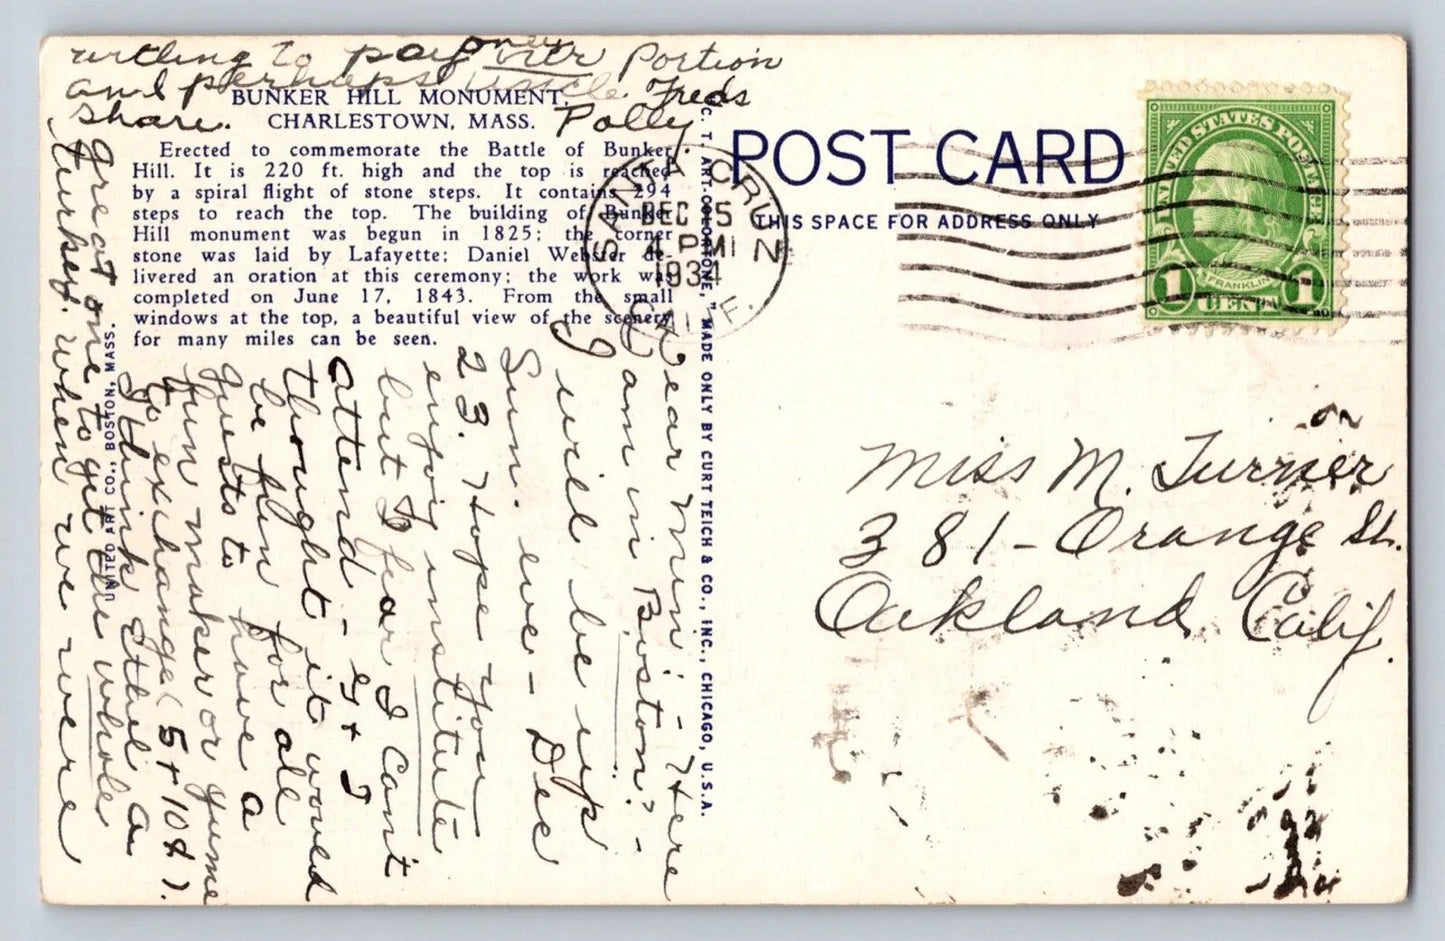 BUNKER HILL MONUMENT,
CHARLESTOWN, MASS.
Erected to commemorate the Battle of Bunker
Hill. It is 220 ft. high and the top is reached
by a spiral flight of stone steps. It contains 294
steps to reach the top. The building of Bunker
Hill monument was begun in 1825; the corner
stone was laid by Lafayette; Daniel Webster de-
livered an oration at this ceremony; the work was
completed on June 17, 1843. From the small
windows at the top, a beautiful view of the scenery
for many miles can be seen.
UNITED ART CO., BOSTON, MASS.
C. T. ART-COLORTONE," MADE ONLY BY CURT TEICH & CO., INC., CHICAGO, U.S.A.
POST CARD
THIS SPACE FOR ADDRESS ONLY
SANTA CRUZ
DEC 15
4 PM
1934
CALIF.
UNITED STATES POSTAGE
FRANKLIN
1 CENT 1
Miss M. Turner
381 - Orange St.
Oakland, Calif.
Dear Min: - Here
I am in Boston? -
I will be up
Sun. eve - Dec
23. Hope you
enjoy institute
but I fear I cant
attend - &
thought it would
be fun for all
guests to have a
fun maker or
to exchange (5 10¢).
I think Ethel an
great one to get the whole
turkey. when we were
willing to pay our Portion
and perhaps Freds
share. Polly